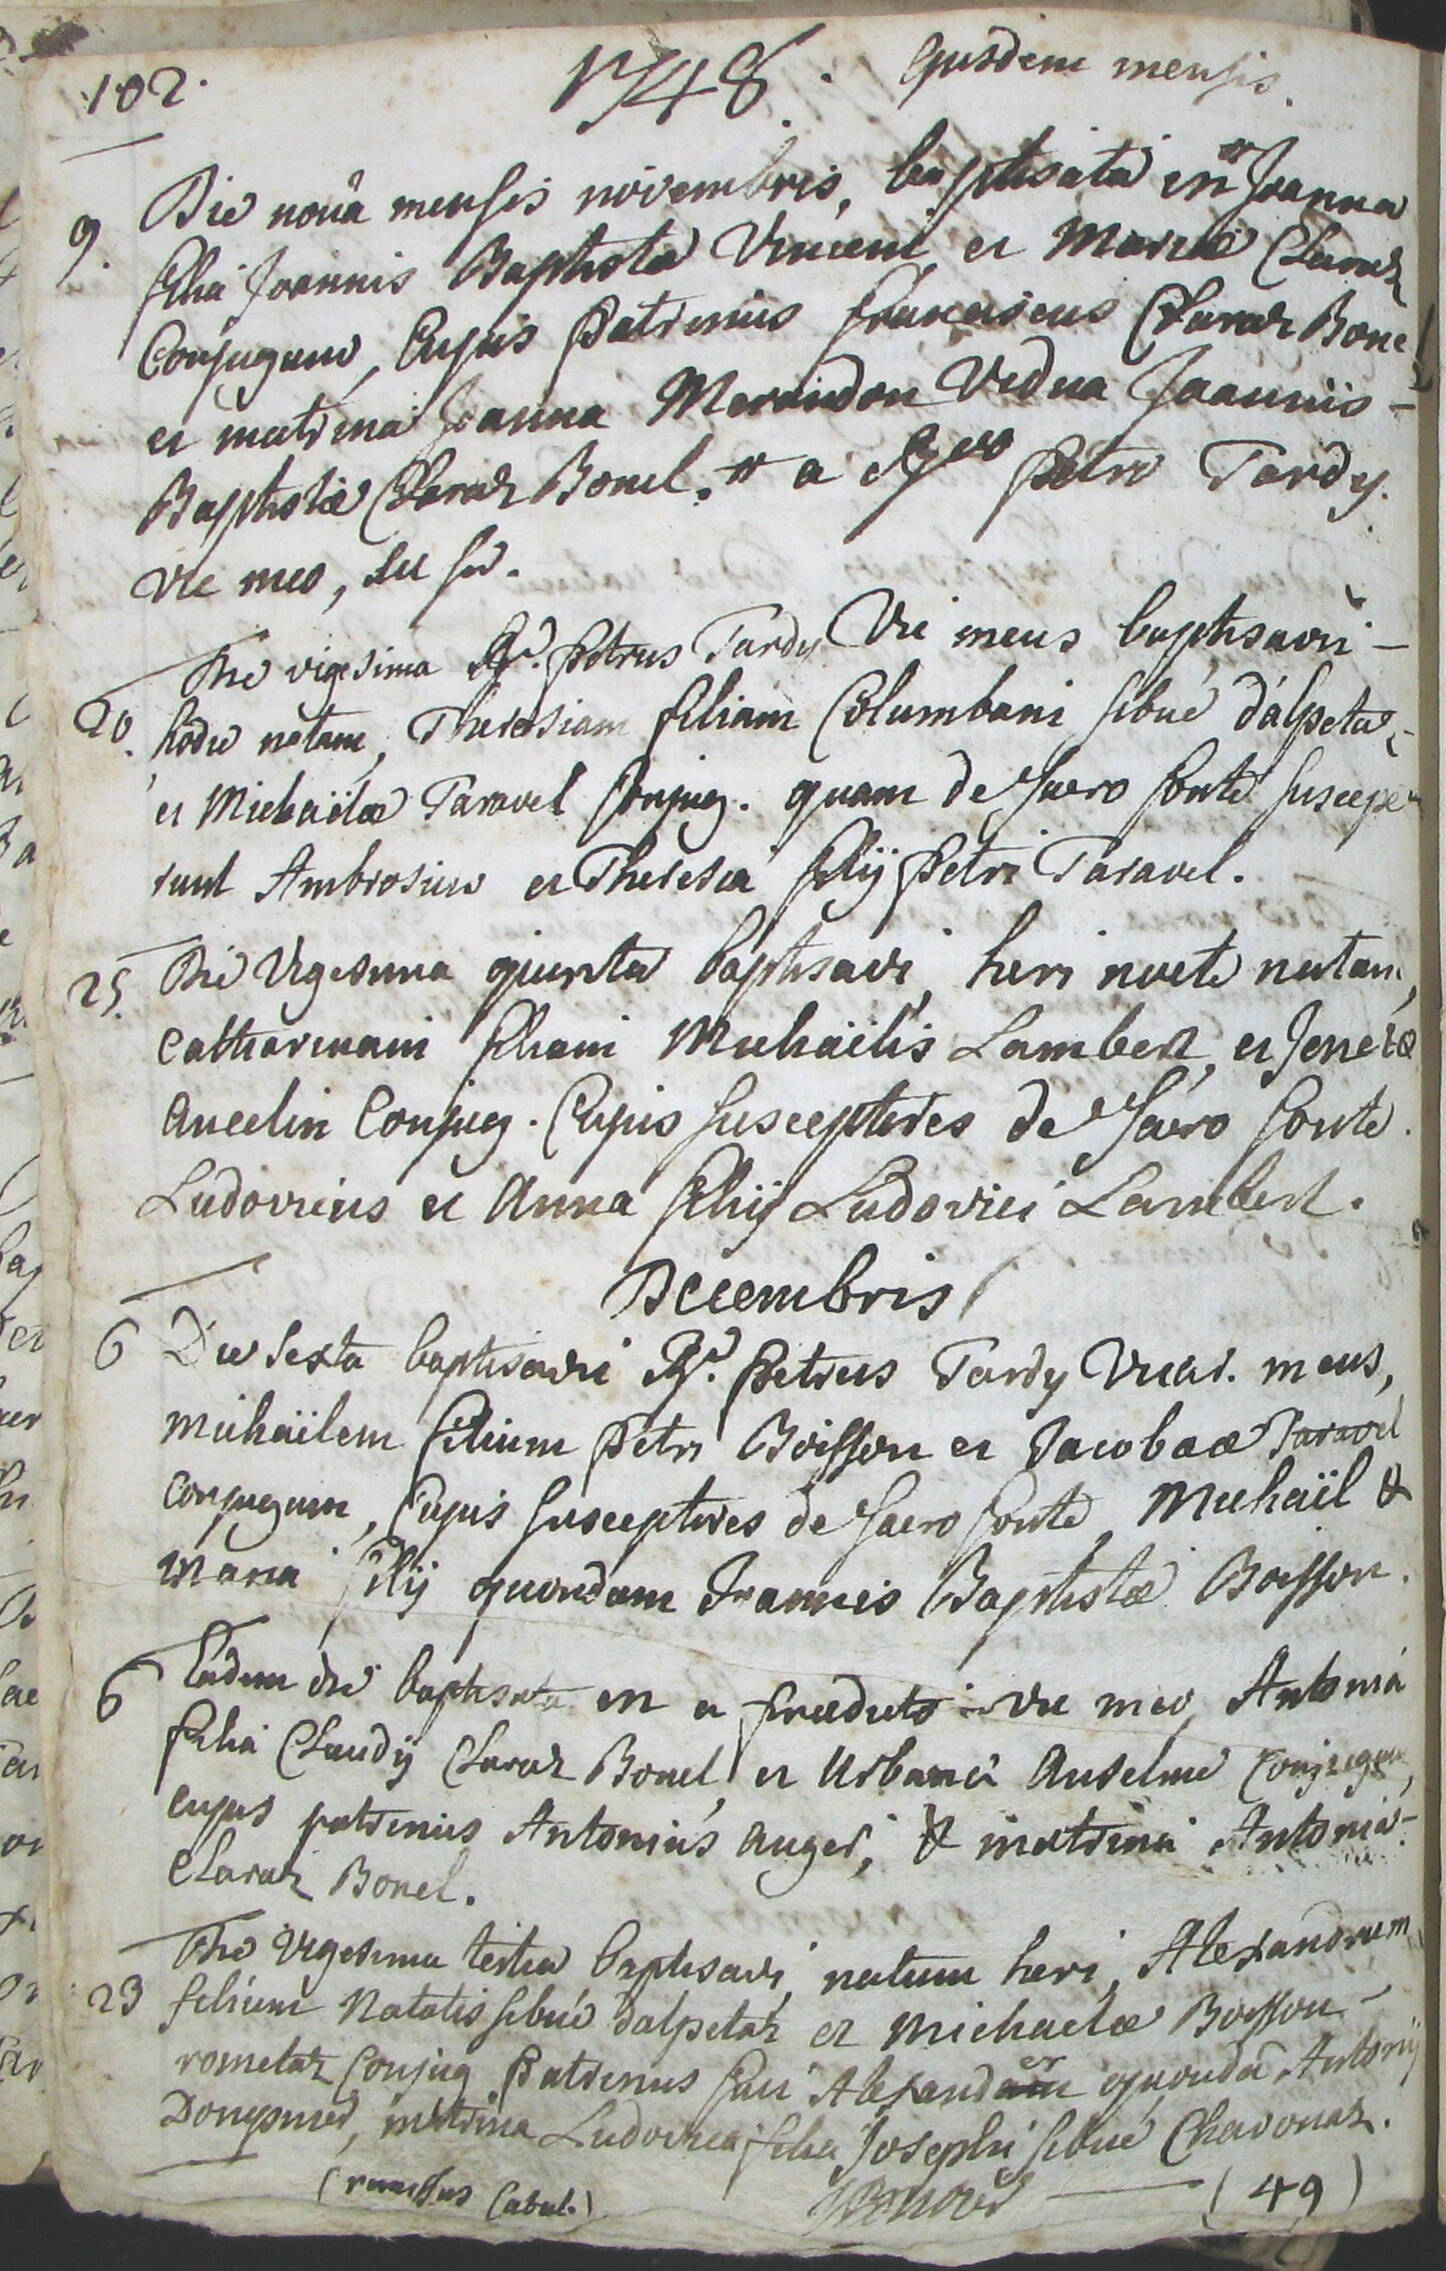 102.
1748. Ejusdem mensis.
9. Die nonâ mensis novembris, baptisata est # Joanna
filia Joannis Baptistæ Vincent et Mariæ Claraz
Conjugum, Cujus patrinus franciscus Claraz Bonel
et matrina Joanna Merandon Vidua Joannis-
Baptistæ Claraz Bonel. # a Rdo petro Tardy.
vic meo,
20. Die vigesima Rd. petrus Tardy Vic meus baptisavi -
hodie natam, Theresiam filiam Columbani sibué dalpetaz
et Michaëlæ Taravel Conjug. quam de sacro fonte suscepe
runt Ambrosius et Theresia filij petri Taravel.
25. Die Vigesima quinta baptisavi, heri nocte natam,
Catharinam filiam Michaëlis Lambert, et Jenetæ
Ancelin Conjug. Cujus susceptores de sacro fonte.
Ludovicus et Anna filij Ludovici Lambert.
Decembris
6 Die sexta baptisavi Rd. petrus Tardy Vicar. meus,
Michaïlem filium petri Boisson et Jacobææ Taravel
Conjugum, Cujus susceptores de sacro fonte, Michaïl &
Maria filij quondam Joannis Baptistæ Boisson.
6 Eadem die baptisata est a prædicto vic meo, Antonia
filia Claudij Claraz Bonel, et Urbanæ Anselme Conjugum,
cujus patrinus Antonius Auger, & matrina Antonia
Claraz Bonel.
23 Die Vigesima tertia baptisavi, natum heri, Alexandrum
filium Natalis sibué dalpetaz et Michaelæ Boisson-
rometaz Conjug patrinus fuit Alexander quondā Antonij
matrina Ludovica filia Josephi sibué Chavonaz.
(49)